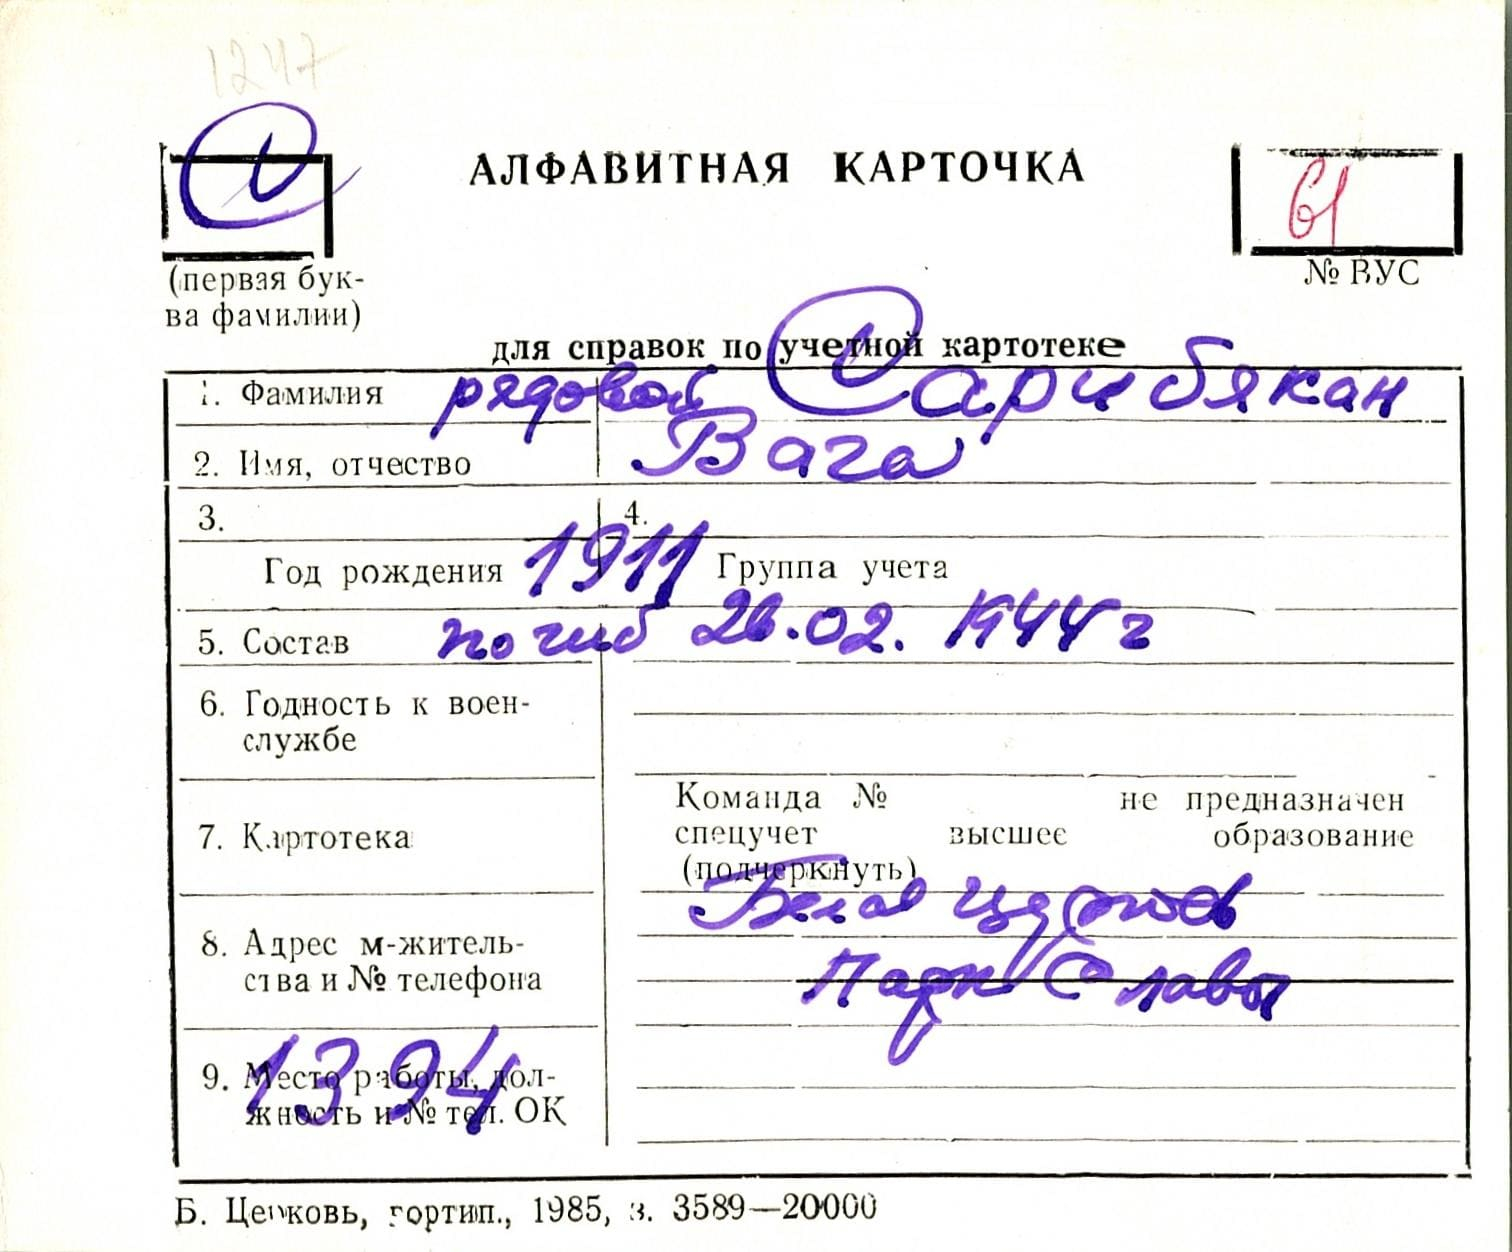 1247
С
АЛФАВИТНАЯ КАРТОЧКА
61
(первая бук-
ва фамилии)
№ ВУС
для справок по учетной картотеке
1. Фамилия рядовой Сарибякан
2. Имя, отчество Вага
3. 4.
Год рождения 1911 Группа учета
5. Состав погиб 26.02.1944г
6. Годность к воен-
службе
7. Картотека
Команда № не предназначен
спецучет высшее образование
(подчеркнуть)
8. Адрес м-житель-
ства и № телефона
Белая Церковь
Парк Славы
9. Место работы, дол-
жность и № тел. ОК
1394
Б. Церковь, гортип., 1985, з. 3589—20000